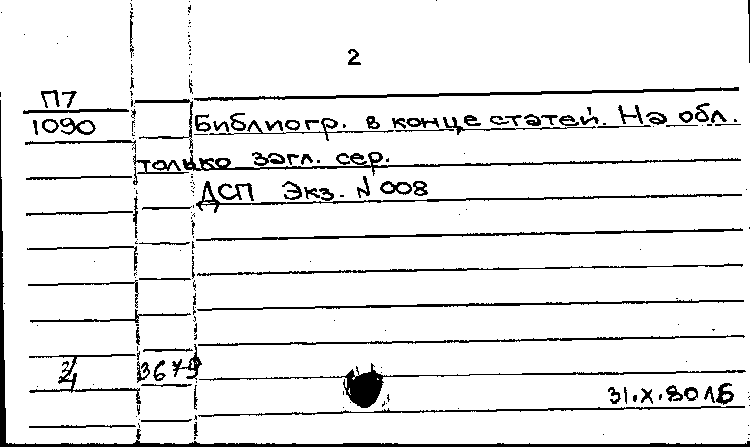 2
П7
1090 Библиогр. в конце статей. На обл.
только загл. сер.
ДСП Экз. N 008
3679
31.X.80 ЛБ